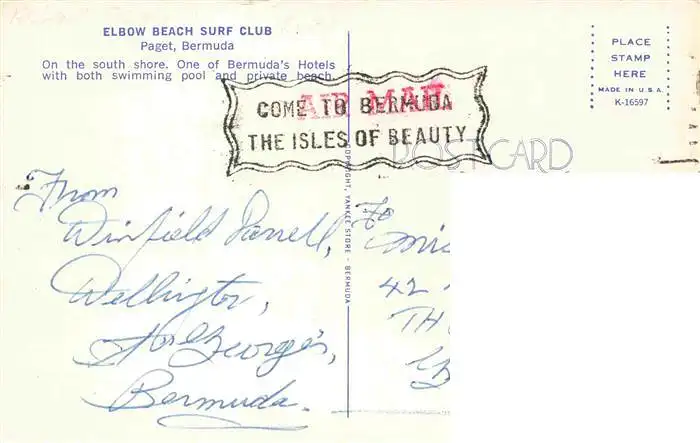 ELBOW BEACH SURF CLUB
Paget, Bermuda
On the south shore. One of Bermuda's Hotels
with both swimming pool and private beach.
PLACE
STAMP
HERE
MADE IN U.S.A.
K-16597
AIR MAIL
COME TO BERMUDA
THE ISLES OF BEAUTY
POSTCARD
COPYRIGHT, YANKEE STORE - BERMUDA
From
Winfield
Wellington,
St. George's,
Bermuda.
To
Mis
42
TH